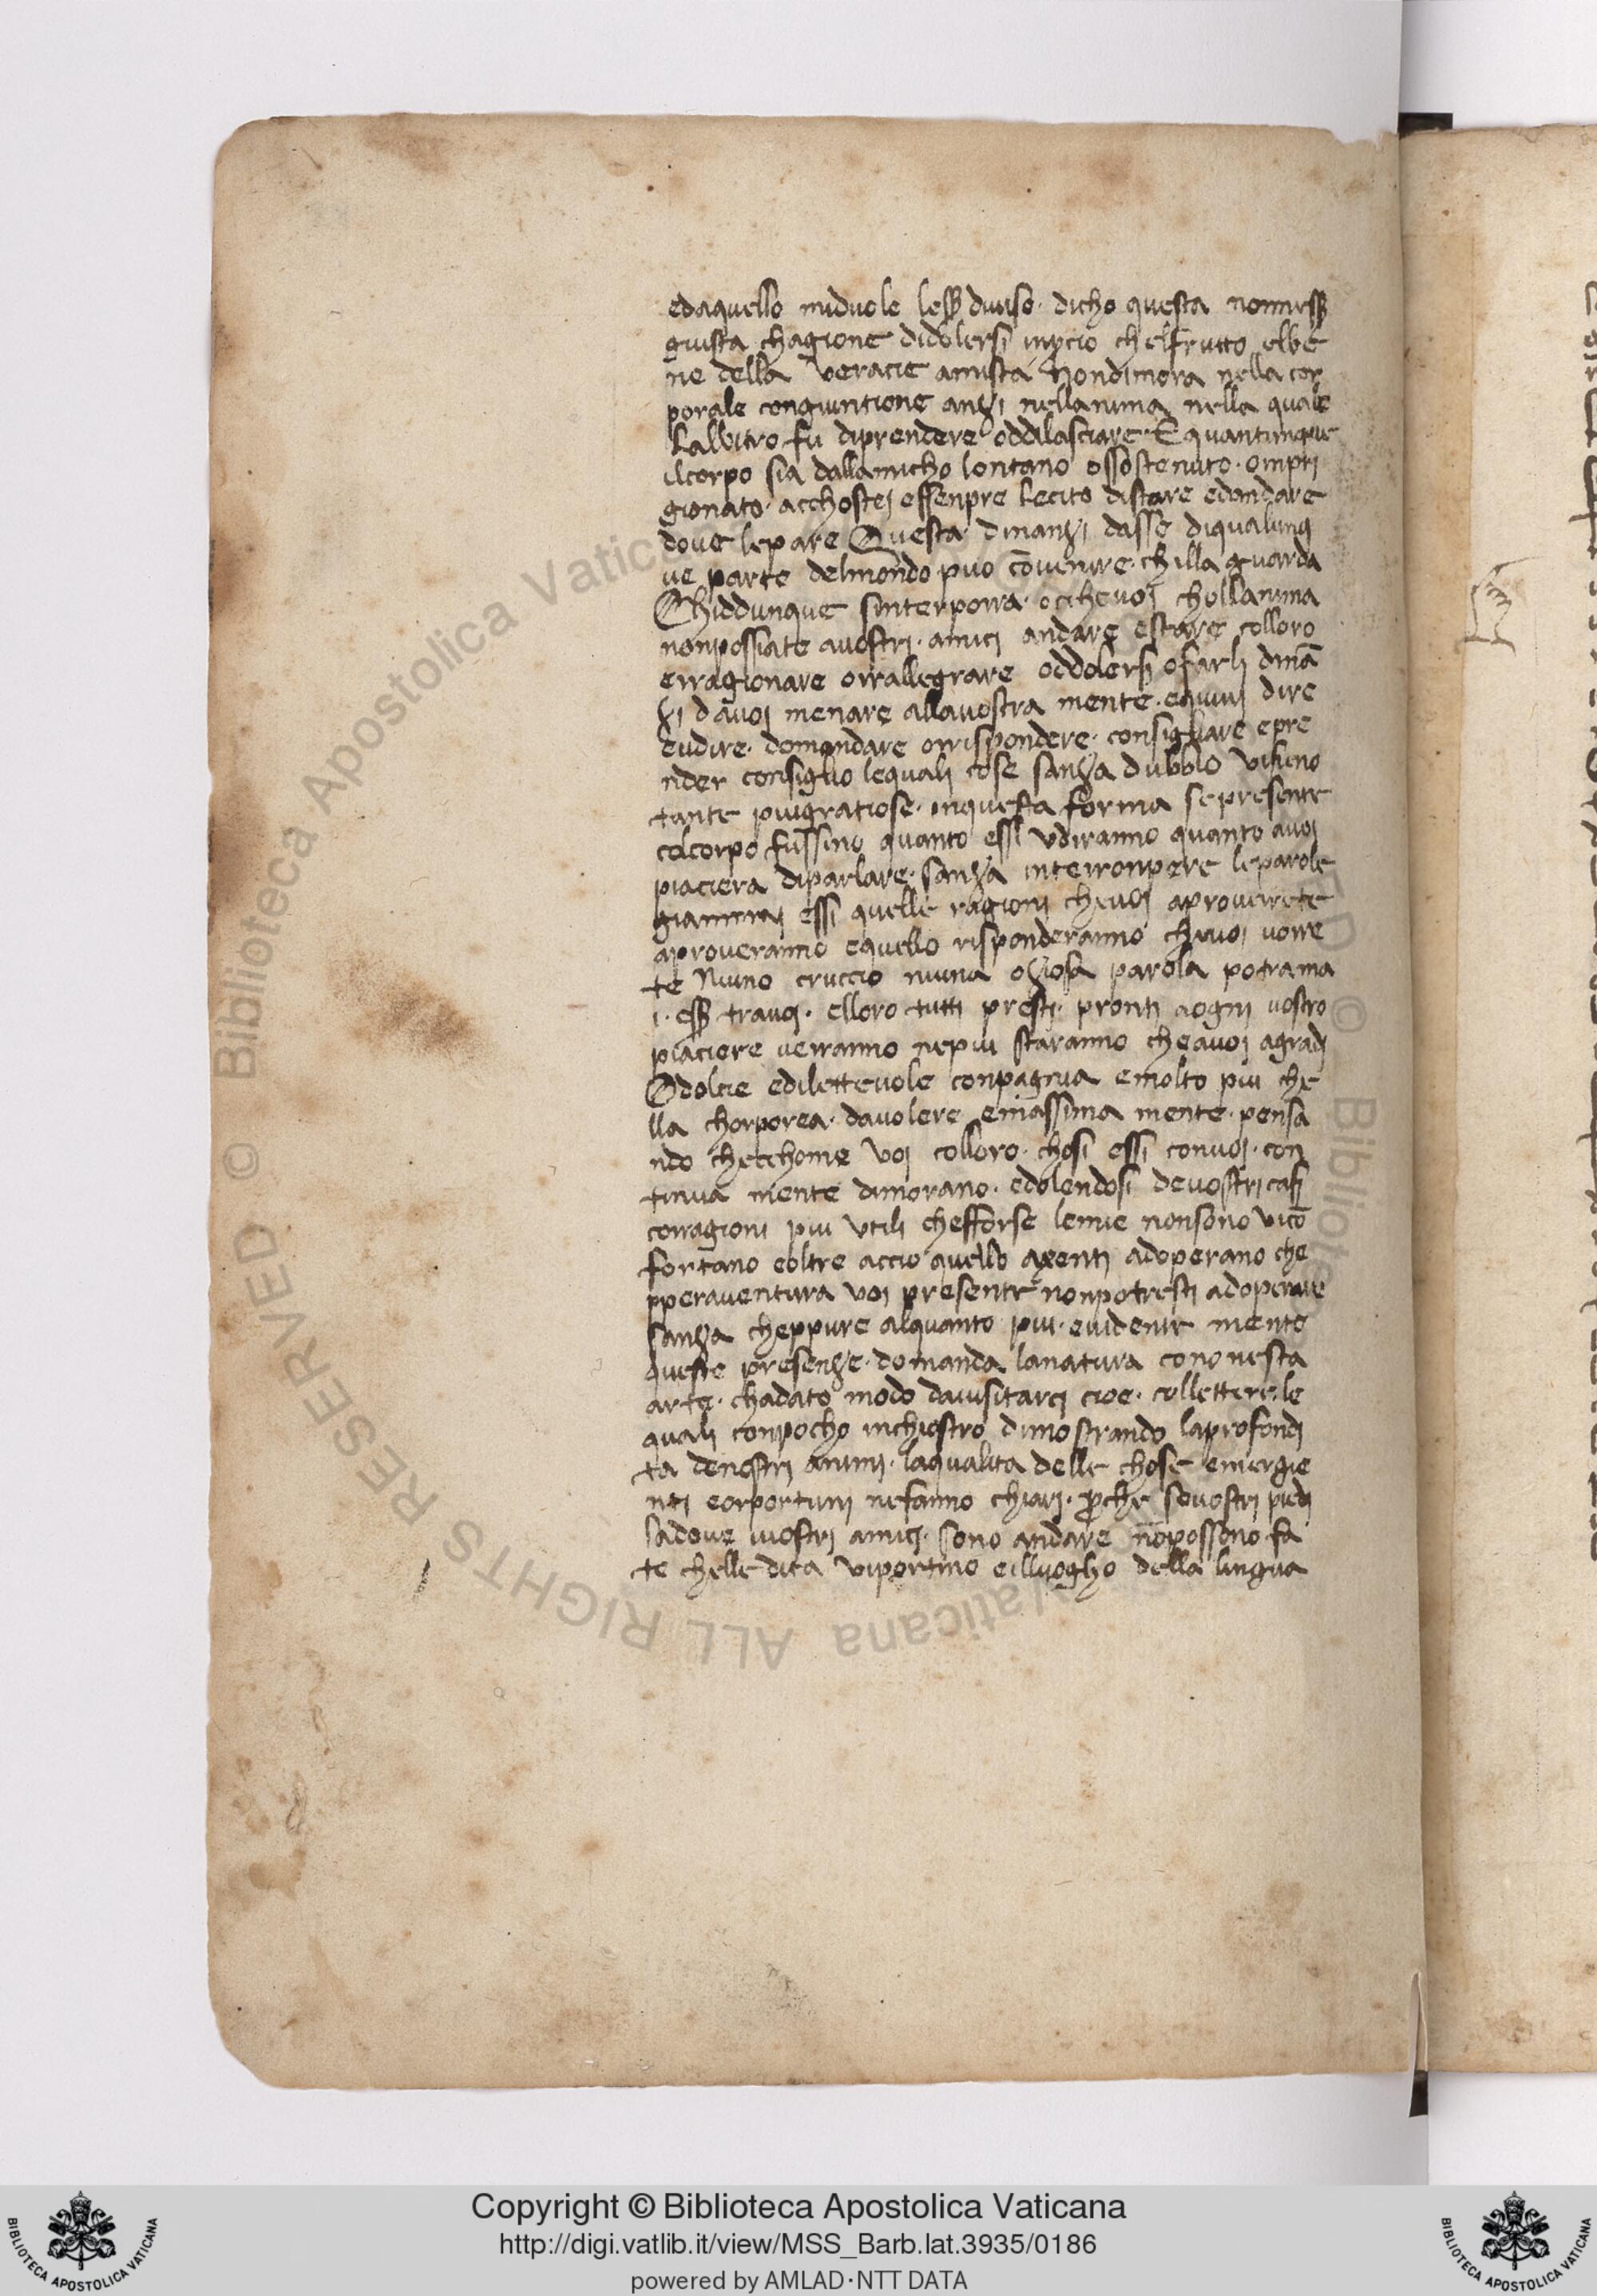 edaquello miduole less diuiso· dicho questa nonness
giusta chagione didolersi inpcio chelfrutto elbe
ne della veracie amista Nondimora nella cor
porale congiuntione anzi nellanima nella quale
Lalbitro fu diprendere oddilasciare· E quantunque
ilcorpo sia dallamicho lontano ossostenuto· ompri
gionato· acchostej essenpre Lecito distare edandare
doue lepare Questa dinanzi dasse diqualunq
ue parte delmondo puo cōuenire· chilla guarda
Chiddunque sinterporra· occheuoj chollanima
nonpossiate auostri· amici andare estare colloro
erragionare orrallegrare oddolersi ofarli dinā
zi dauoj menare allauostra mente· equiui dire
eudire· domandare orrispondere· consigliare epre
nder consiglio lequali cose sanza dubbio vifieno
tante piugratiose· inquesta forma sepresente
colcorpo fussino quanto essi vdiranno quanto auoj
piaciera diparlare· sanza interronpere leparole
giammaj essi quelle ragioni cheuoj aproverrete
aproueranno equello risponderanno cheuoj vorre
te Niuno cruccio niuna oziosa parola potrama
i· ess trauoj· elloro tutti presti· pronti aogni vostro
piaciere verranno nepiu staranno cheauoj agradj
O dolcie edilettevole conpagnia emolto piu che
lla chorporea· dauolere emassima mente· pensa
ndo checchome voj colloro· chosi essi conuoj· con
tinua mente dimorano· edolendosi deuostri casi
conragioni piu vtili chefforse lemie nonsono vicō
fortano eoltre accio quello asenti adoperano che
pperauentura voi presente nonpotresti adoperare
sanza cheppure alquanto piu· euidente mente
queste presenze· domanda lanatura cononesta
arte· chadato modo dauisitarci cioe· collettere· le
quali conpocho inchiostro dimostrando laprofondi
ta denostri animi· laqualita delle chose emergie
nti eorportuni nefanno chiari· pche seuostri piedi
ladoue iuostri amici· sono andare nōpossono fa
te chelle dita viportino eilluogho della lingua
Copyright © Biblioteca Apostolica Vaticana
http://digi.vatlib.it/view/MSS_Barb.lat.3935/0186
powered by AMLAD·NTT DATA
BIBLIOTECA APOSTOLICA VATICANA
BIBLIOTECA APOSTOLICA VATICANA
© Biblioteca Apostolica Vaticana ALL RIGHTS RESERVED